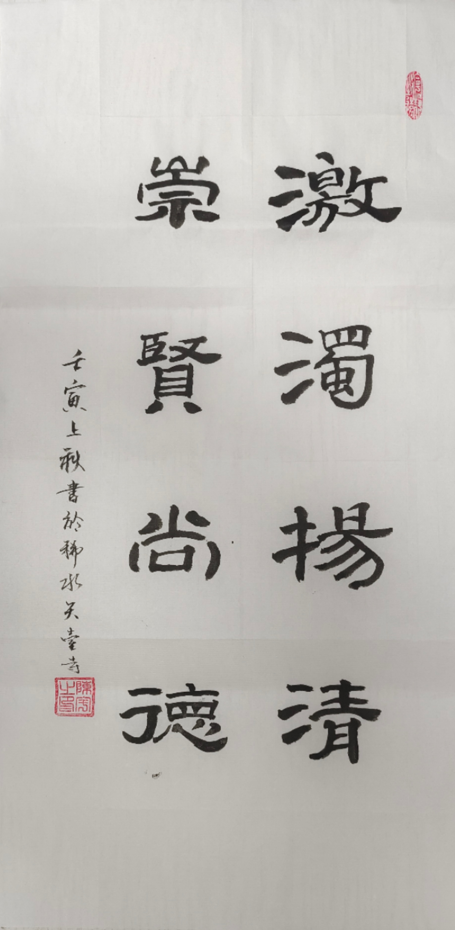 激濁揚清
崇賢尚德
壬寅上秋書於稀水天臺寺